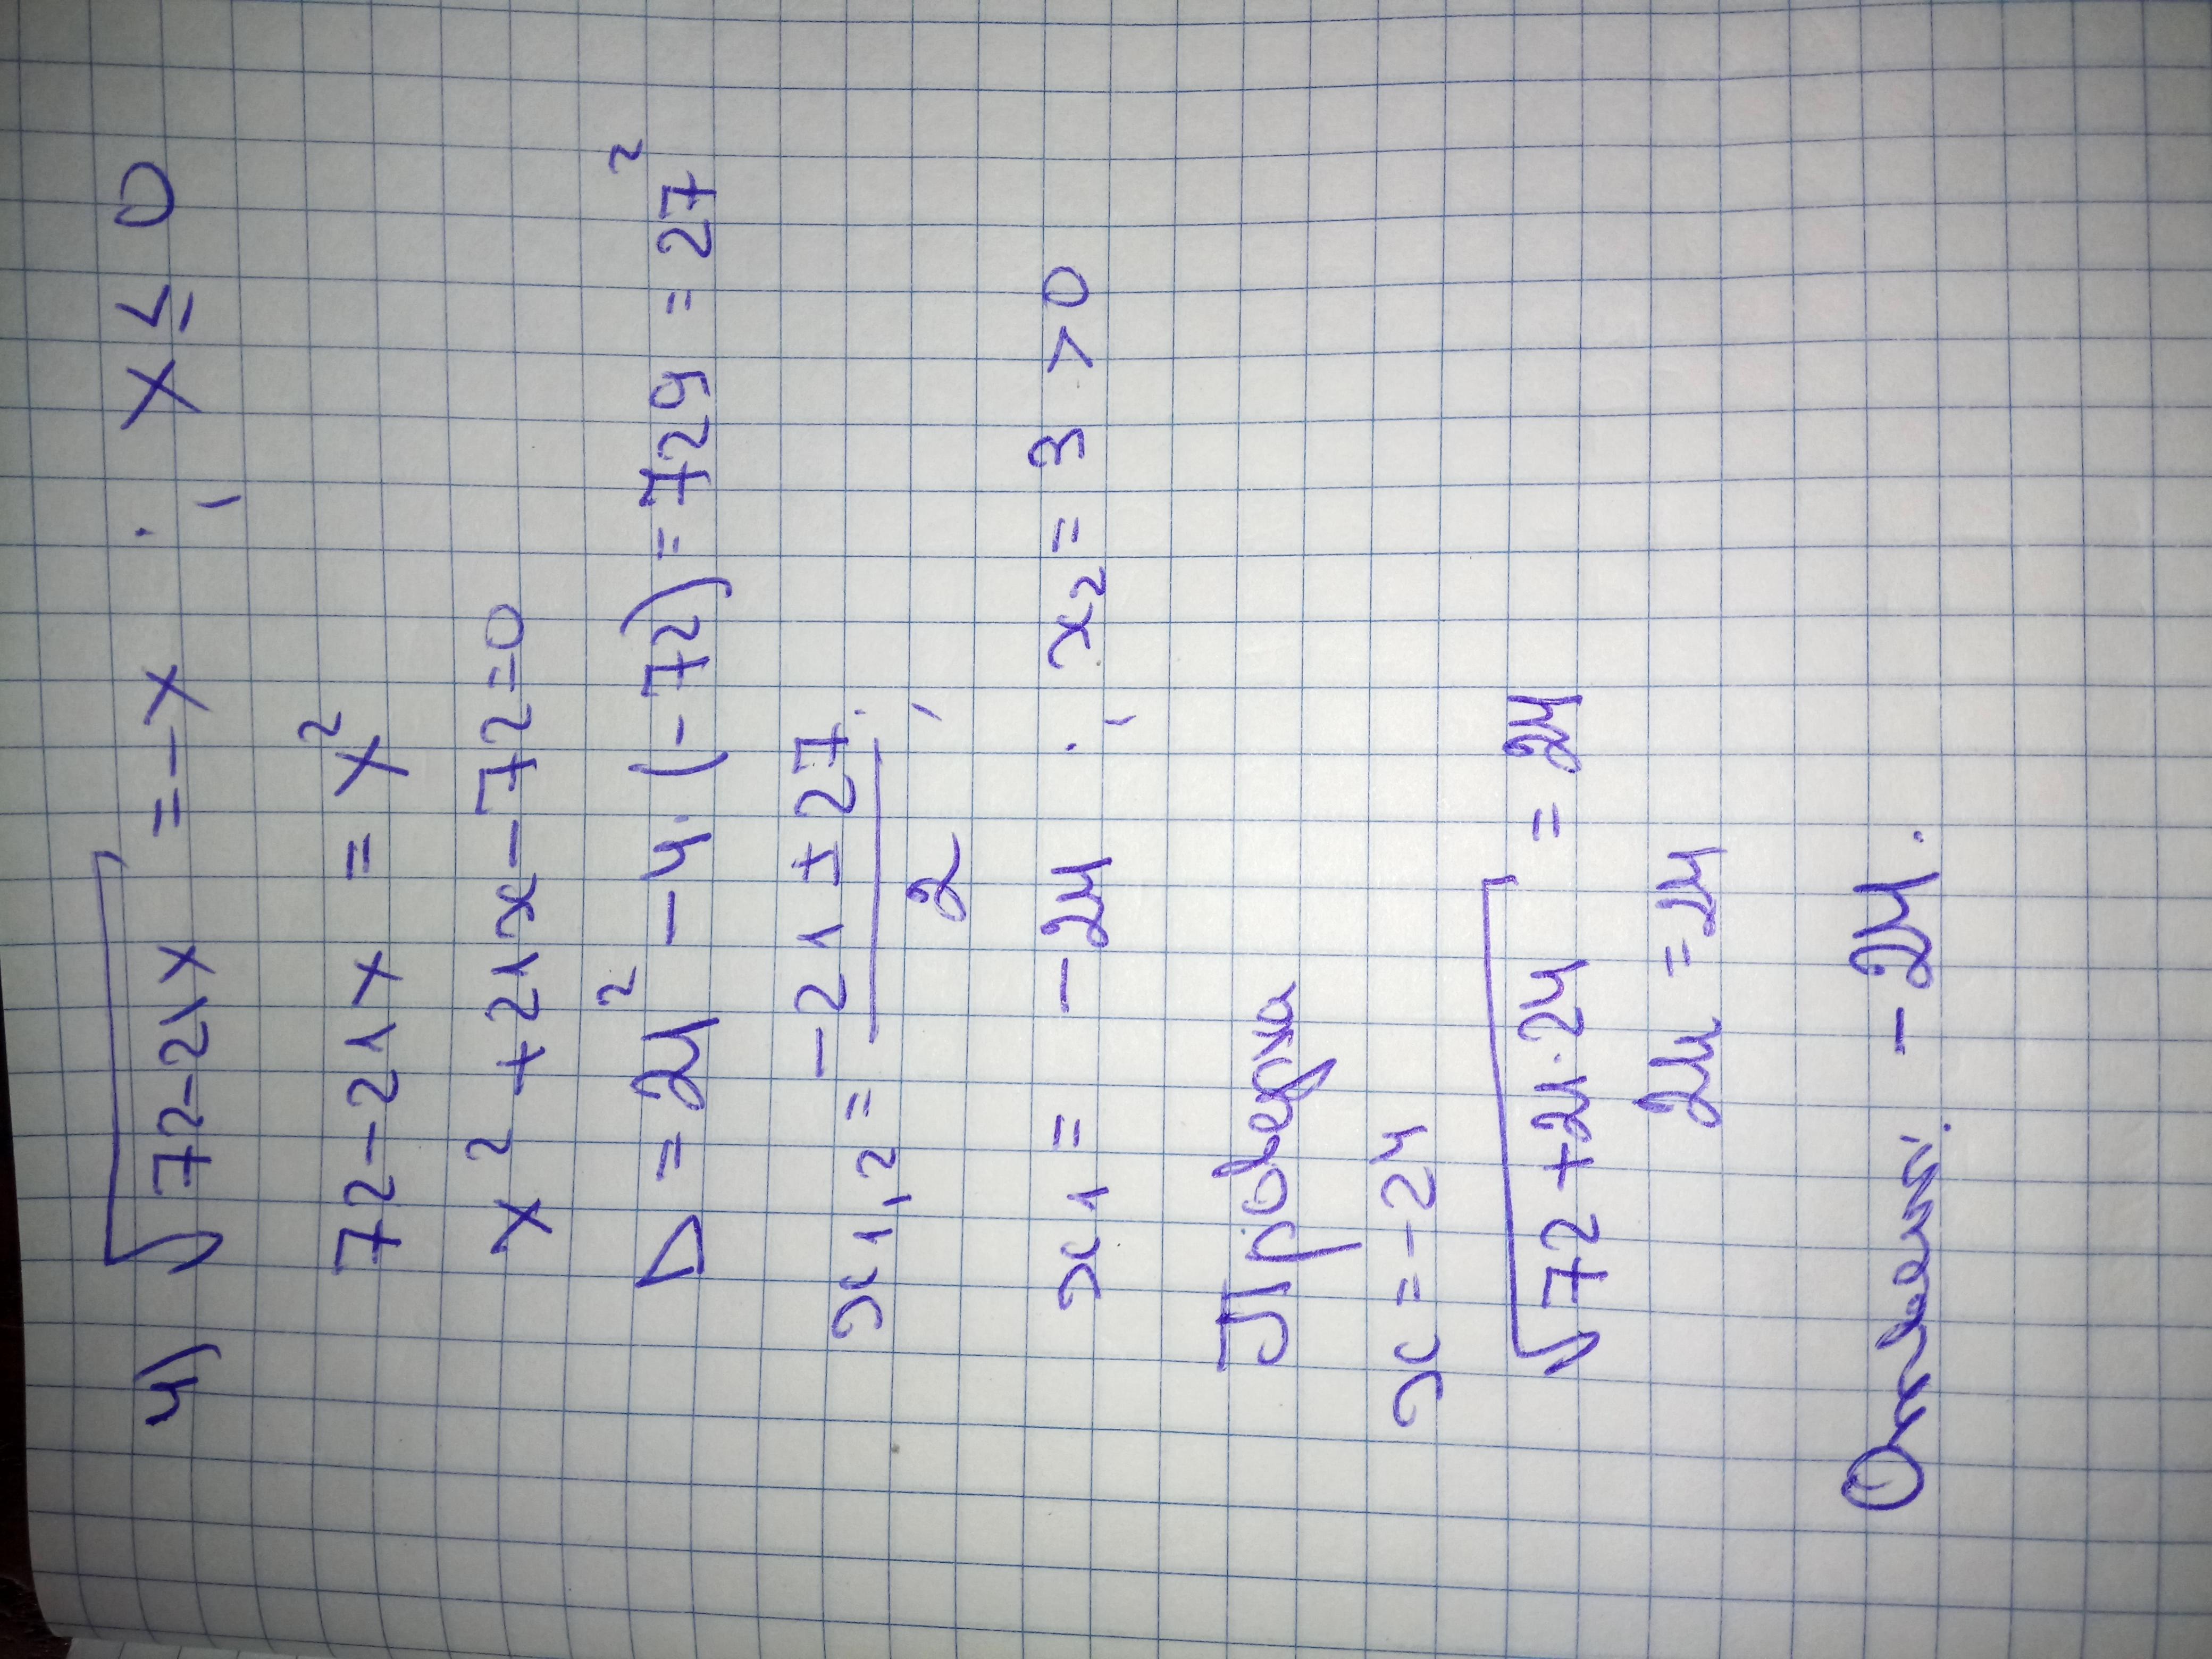 4) √72-21x = -x ; x ≤ 0
72-21x = x²
x² +21x-72=0
D = 21² -4·(-72) = 729 = 27²
x1,2 = -21±27/2 ;
x1 = -24 ; x2 = 3 >0
Проверка
x = -24
√72+21·24 = 24
24 = 24
Ответ: -24.